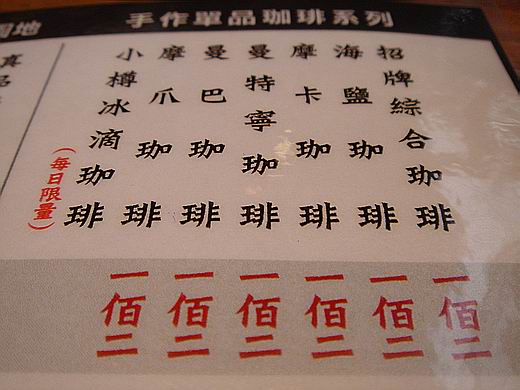 手作單品珈琲系列
招牌綜合珈琲
海鹽珈琲
摩卡珈琲
曼特寧珈琲
曼巴珈琲
摩爪珈琲
小樽冰滴珈琲
(每日限量)
一佰二
一佰二
一佰二
一佰二
一佰二
一佰二
地
真